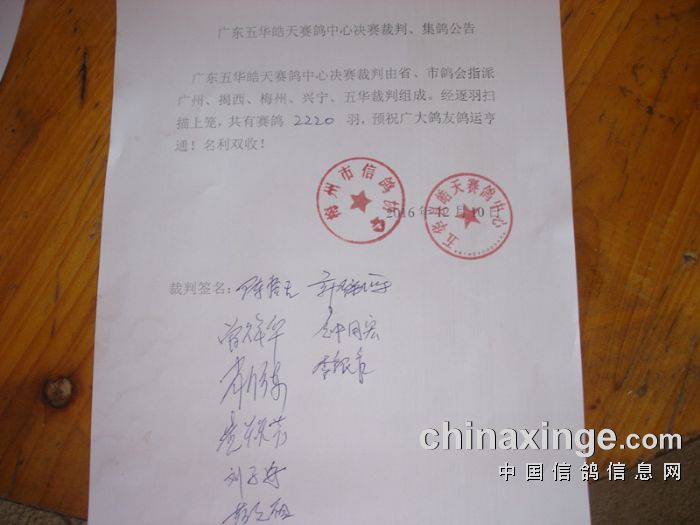 广东五华皓天赛鸽中心决赛裁判、集鸽公告
广东五华皓天赛鸽中心决赛裁判由省、市鸽会指派
广州、揭西、梅州、兴宁、五华裁判组成。经逐羽扫
描上笼，共有赛鸽 2220 羽，预祝广大鸽友鸽运亨
通！名利双收！
梅州市信鸽协会
五华县皓天赛鸽中心
2016年12月10日
裁判签名：
chinaxinge.com
中国信鸽信息网